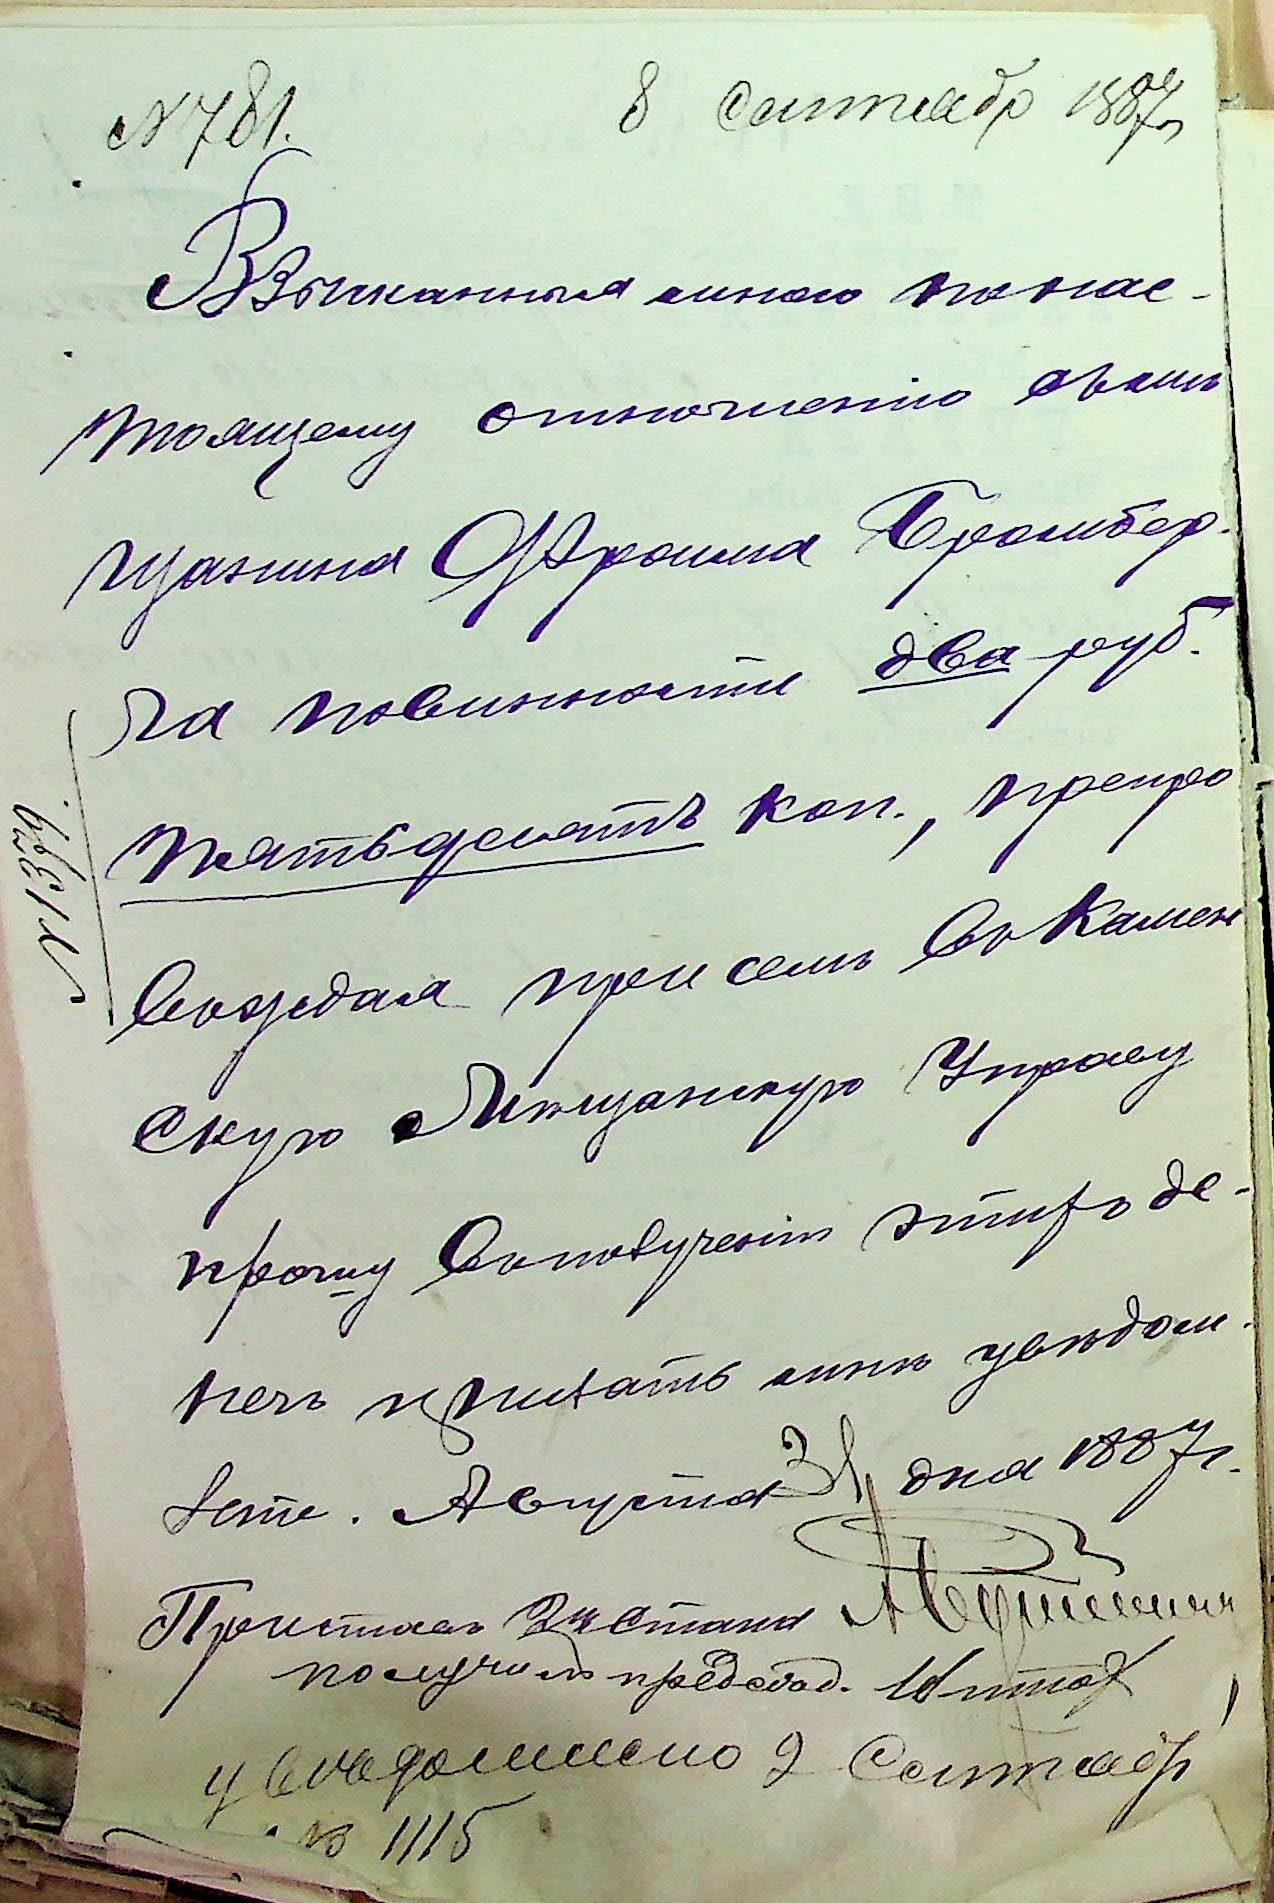 № 781. 8 Сентабр 1887 г
Взысканныя мною по нас-
тоящему отношенію съ мѣ
щанина Фроима Бромбер-
га повинности два руб.
пятьдесятъ коп., препро
вождая при семъ въ Камен
скую Мѣщанскую Управу
прошу въ полученіи этихъ де-
негъ прислать мнѣ увѣдом-
леніе. Августа 31 дня 1887 г.
Приставъ 2 Стана
получилъ председ.
уведомлено 9 Сентабр
№ 1115
№ 1379